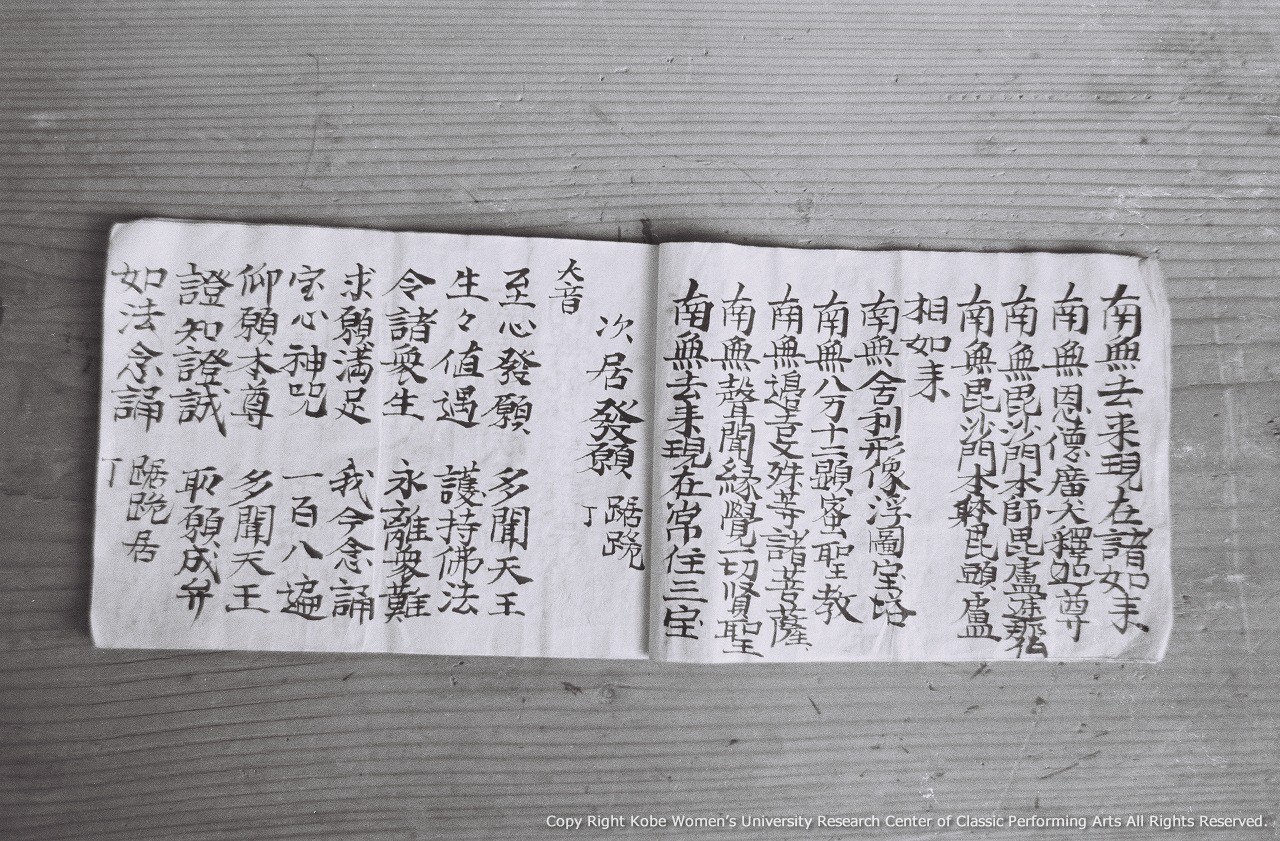 南無去来現在諸如来
南無恩德廣大釋迦尊
南無毘沙門本師毘盧遮那仏
南無毘沙門本躰毘盧
相如来
南無舎利形像浮圖宝塔
南無八万十二顕密聖教
南無邉吉文殊等諸菩薩
南無聲聞縁覺一切賢聖
南無去来現在常住三宝
次居發願 踞跪
丁
大音
至心發願 多聞天王
生々値遇 護持佛法
令諸衆生 永離衆難
求願満足 我今念誦
宝心神呪 一百八遍
仰願本尊 多聞天王
證知證誠 所願成弁
如法念誦 踞跪居
丁
Copy Right Kobe Women's University Research Center of Classic Performing Arts All Rights Reserved.